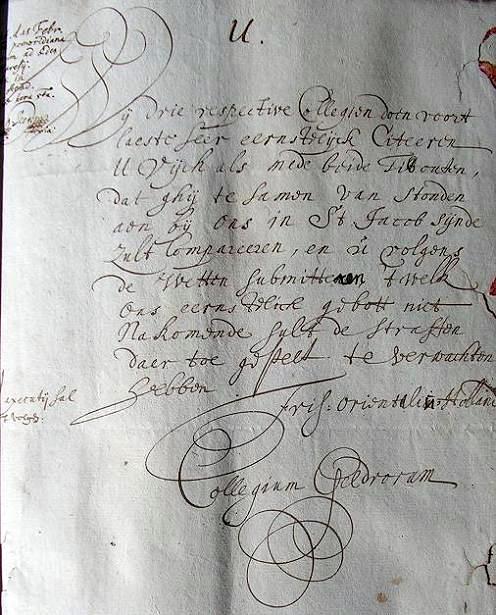 U.
Wij drie respective Collegien doen voort
laeste seer eernstelijck Citeeren
U Vijck als mede beide Tibouten,
dat ghij te samen van stonden
aen bij ons in St Jacob sijnde
zult Compareeren, en u volgens
de Wetten submitteren 't welk
ons eernstelijck gebott niet
Nakomende sult de straffen
daer toe gestelt te verwachten
hebben
Fris: Orientalis Hollan
Collegium Geldrorum
executij sal